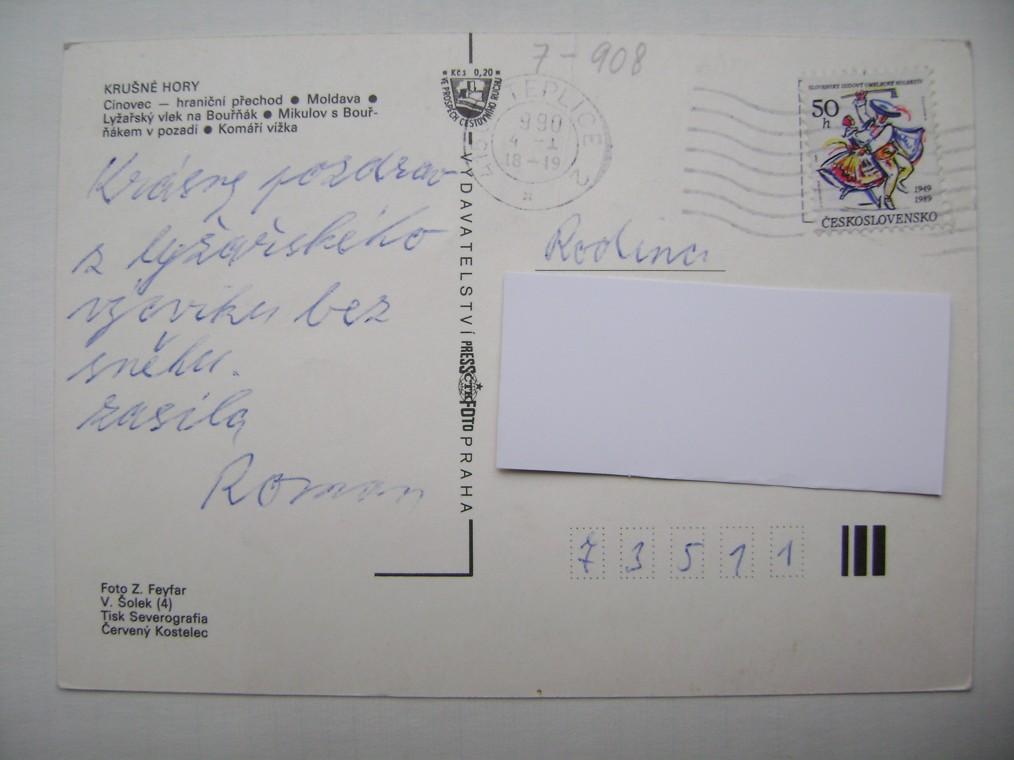 7-908
KRUŠNÉ HORY
Cínovec — hraniční přechod ● Moldava ●
Lyžařský vlek na Bouřňák ● Mikulov s Bouř-
ňákem v pozadí ● Komáří vížka
Krásný pozdrav
z lyžařského
výcviku bez
sněhu.
zasílá
Roman
Foto Z. Feyfar
V. Šolek (4)
Tisk Severografia
Červený Kostelec
Kčs 0,20
VE PROSPĚCH CESTOVNÍHO RUCHU
VYDAVATELSTVÍ PRESSFOTO PRAHA
ČTK
TEPLICE 2
990
18-19
50
h
1949
1989
ČESKOSLOVENSKO
Rodina
7 3 5 1 1